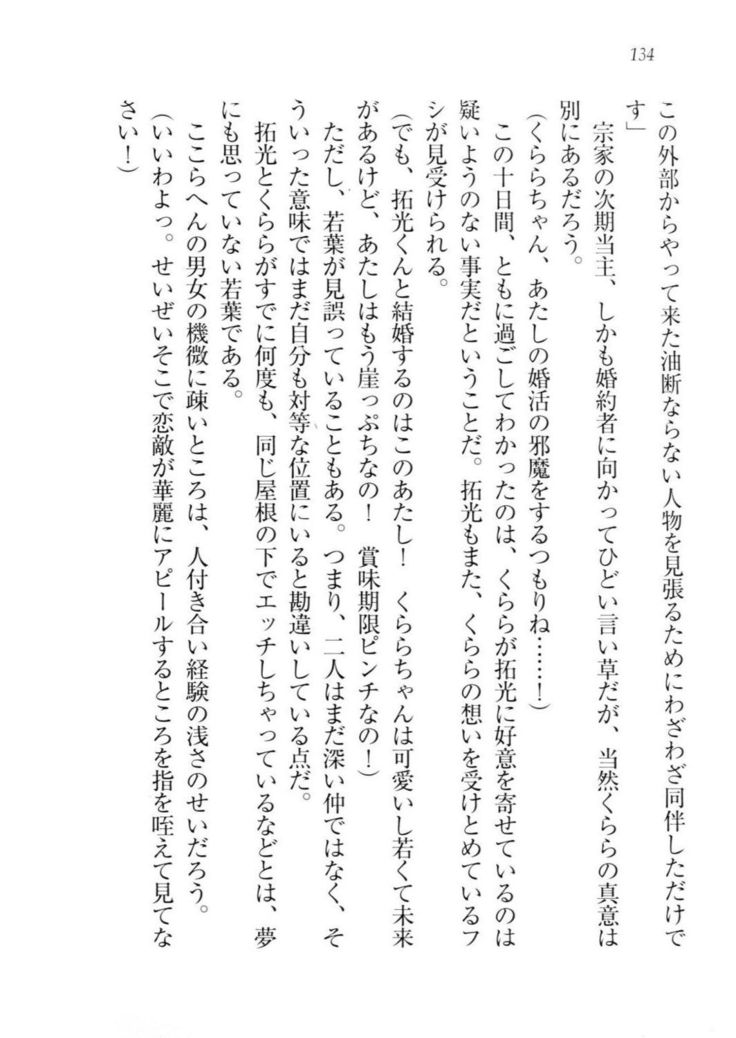 134
この外部からやって来た油断ならない人物を見張るためにわざわざ同伴しただけで
す」
宗家の次期当主、しかも婚約者に向かってひどい言い草だが、当然くららの真意は
別にあるだろう。
（くららちゃん、あたしの婚活の邪魔をするつもりね……！）
この十日間、ともに過ごしてわかったのは、くららが拓光に好意を寄せているのは
疑いようのない事実だということだ。拓光もまた、くららの想いを受けとめているフ
シが見受けられる。
（でも、拓光くんと結婚するのはこのあたし！　くららちゃんは可愛いし若くて未来
があるけど、あたしはもう崖っぷちなの！　賞味期限ピンチなの！）
ただし、若葉が見誤っていることもある。つまり、二人はまだ深い仲ではなく、そ
ういった意味ではまだ自分も対等な位置にいると勘違いしている点だ。
拓光とくららがすでに何度も、同じ屋根の下でエッチしちゃっているなどとは、夢
にも思っていない若葉である。
ここらへんの男女の機微に疎いところは、人付き合い経験の浅さのせいだろう。
（いいわよっ。せいぜいそこで恋敵が華麗にアピールするところを指を咥えて見てな
さい！）